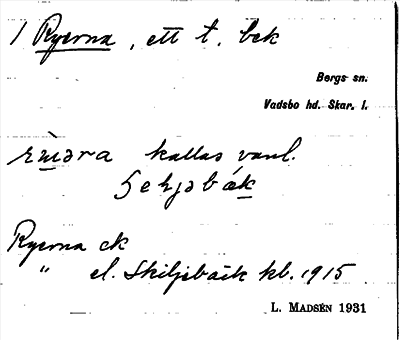 1 Ryerna, ett t. bek
Bergs sn.
Vadsbo hd. Skar. l.
kallas vanl.
Ryerna ck
" el. Skiljebäck kb. 1915
L. MADSÉN 1931